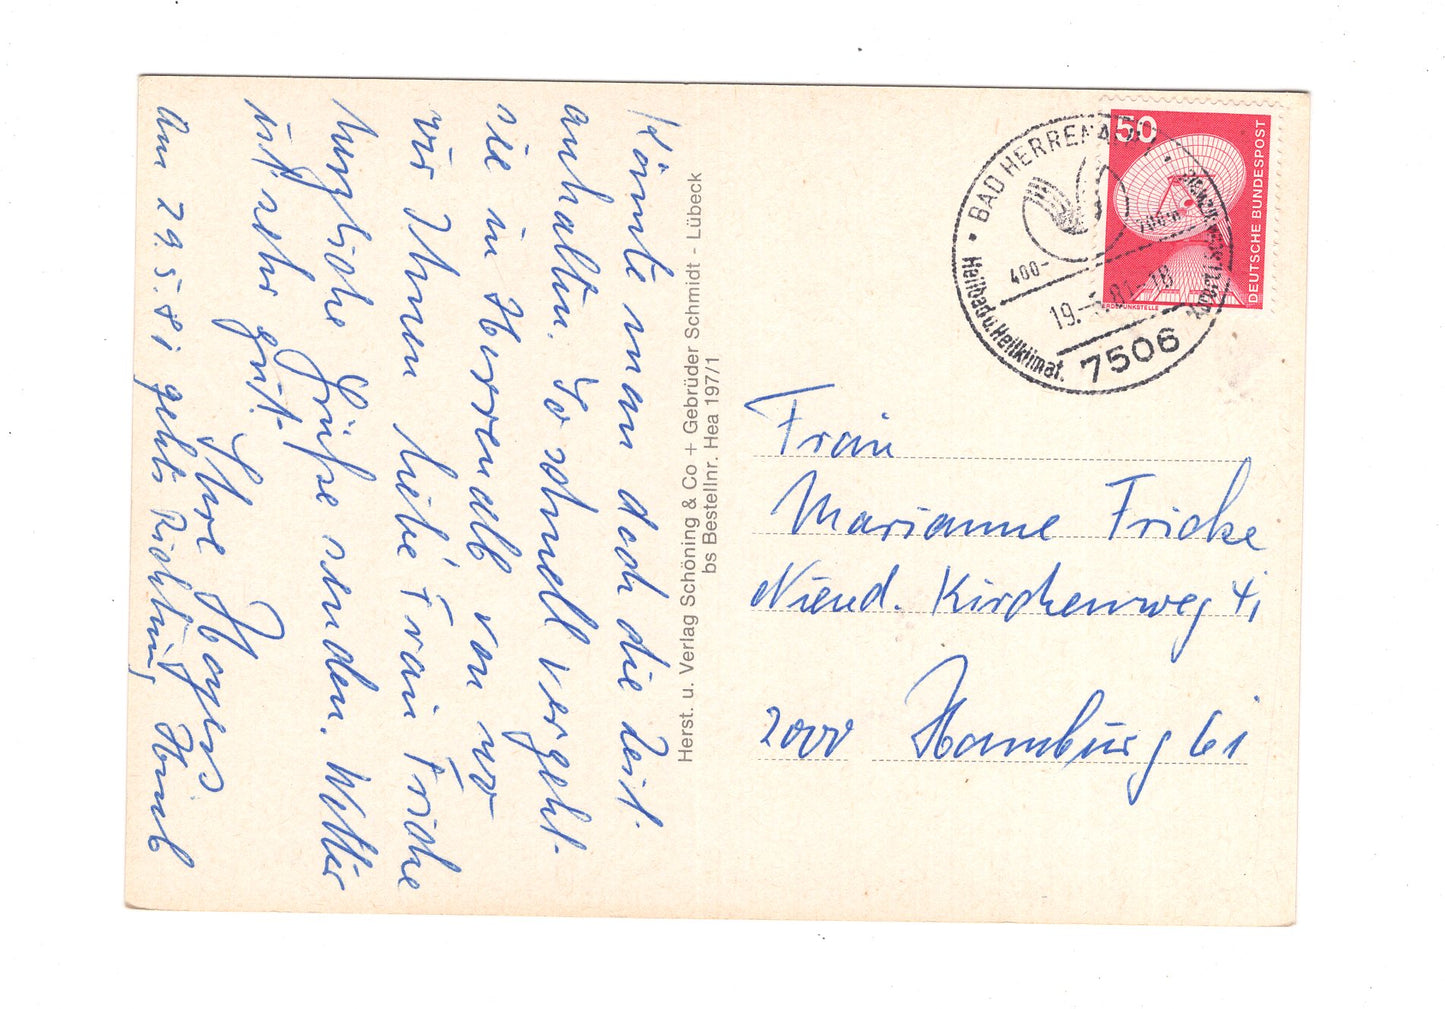 Könnte man doch die Zeit
anhalten. So schnell vergeht
sie in Herrenalb von wo
wir Ihnen liebe Frau Fricke
herzliche Grüße senden. Wetter
ist sehr gut.
Ihre Hayers
Am 29.5.81 gehts Richtung
Herst. u. Verlag Schöning & Co + Gebrüder Schmidt - Lübeck
bs Bestellnr. Hea 197/1
BAD HERRENALB
400-700m
Heilbad u. Heilklimat.
19.-5.81-18
7506
50
DEUTSCHE BUNDESPOST
ERDFUNKSTELLE
Frau
Marianne Fricke
Niend. Kirchenweg 4i
2000 Hamburg 61